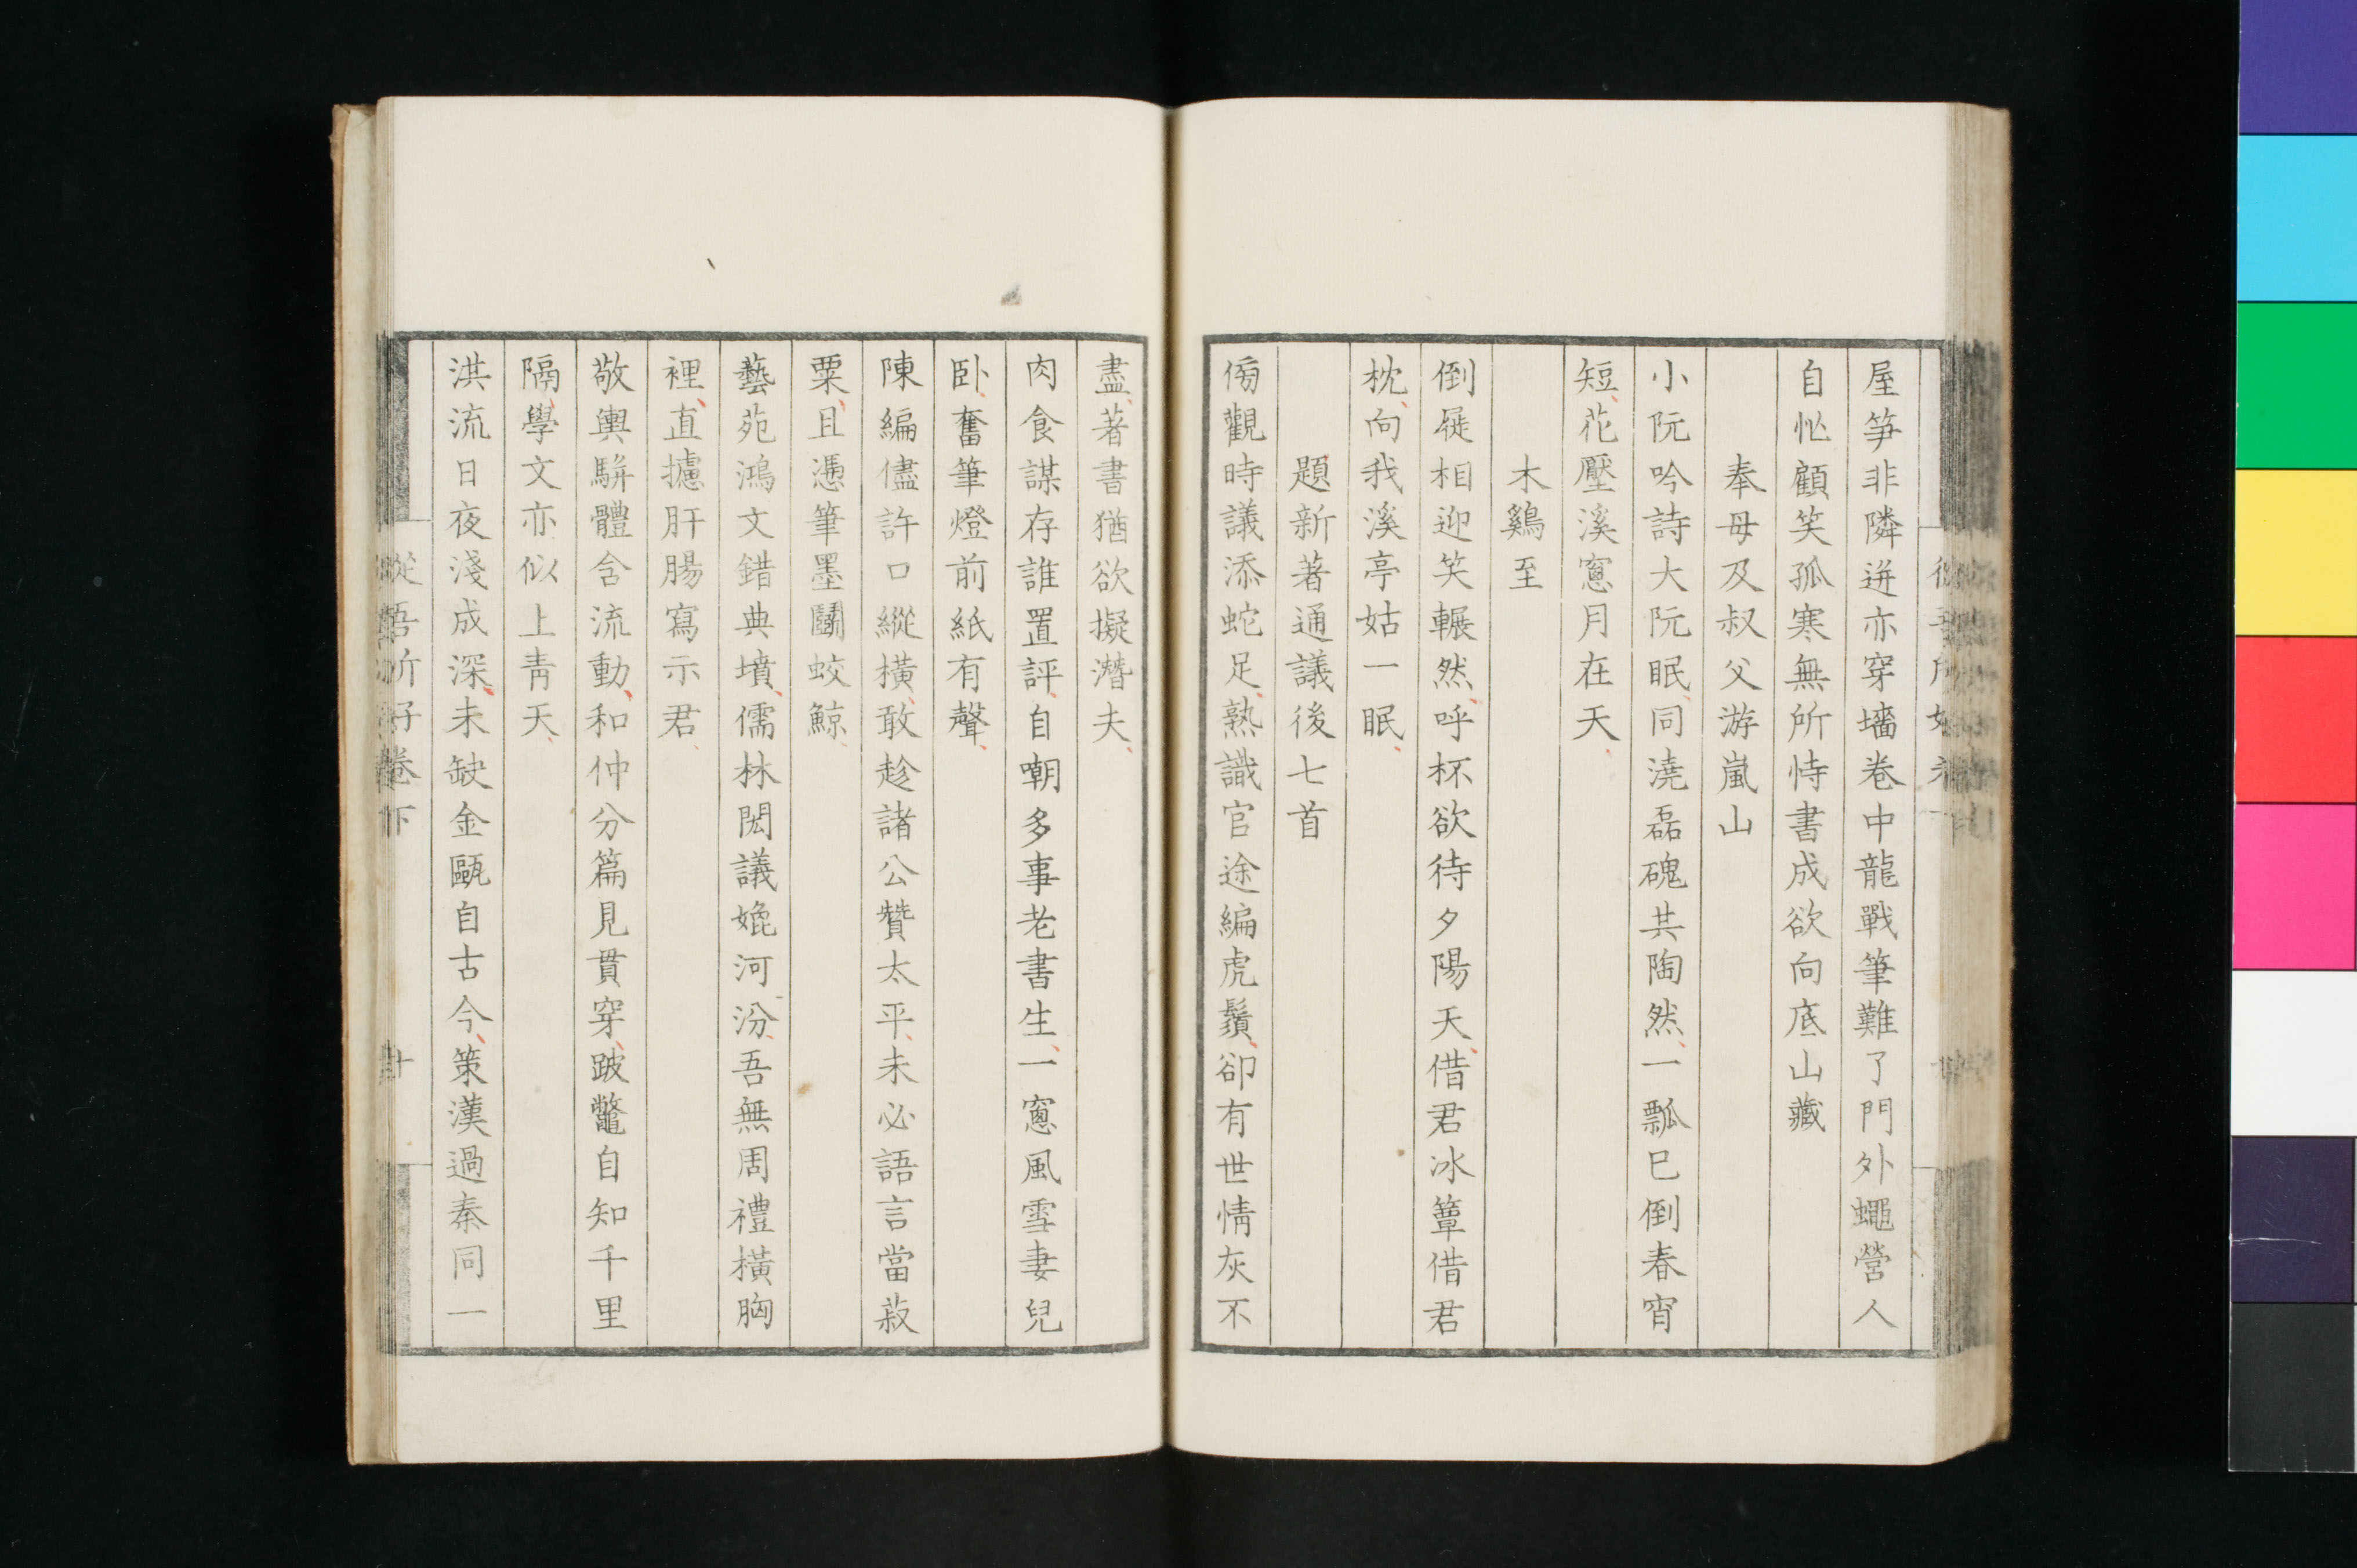 屋筍非隣迸亦穿墻卷中龍戰筆難了門外蠅營人
自怭顧笑孤寒無所恃書成欲向底山藏
奉母及叔父游嵐山
小阮吟詩大阮眠同澆磊磈共陶然一瓢巳倒春宵
短花壓溪窻月在天
木鷄至
倒屣相迎笑輾然呼杯欲待夕陽天借君冰簟借君
枕向我溪亭姑一眠
題新著通議後七首
傍觀時議添蛇足熟識官途編虎鬚卻有世情灰不
盡著書猶欲擬潛夫
肉食謀存誰置評自嘲多事老書生一窻風雪妻兒
卧奮筆燈前紙有聲
陳編儘許口縱橫敢趁諸公贊太平未必語言當菽
粟且憑筆墨鬭蛟鯨
藝苑鴻文錯典墳儒林閎議媲河汾吾無周禮橫胸
裡直攄肝腸寫示君
敬輿駢體含流動和仲分篇見貫穿跛鼈自知千里
隔學文亦似上青天
洪流日夜淺成深未缺金甌自古今策漢過秦同一
從吾所好卷下